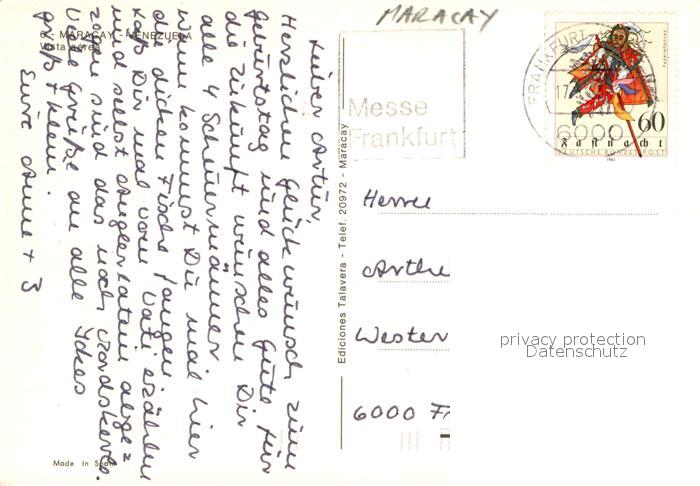 MARACAY
6 - MARACAY - VENEZUELA
Vista aérea
Lieber Artur,
Herzlichen Glückwunsch zum
Geburtstag und alles Gute für
die Zukunft wünschen Dir
alle 4 Scheuermänner.
Wann kommst Du mal hier
die dicken Fische fangen
laß Dir mal vom Vati erzählen
und selbst
sind das noch
Viele Grüße an alle
groß + klein.
Eure Anne + 3
Made in Spain
Ediciones Talavera - Telef. 20972 - Maracay
Messe
Frankfurt
FRANKFURT
17
6000
60
Fastnacht
DEUTSCHE BUNDESPOST
1983
Herrn
Arthu
Wester
6000 Fr
privacy protection
Datenschutz